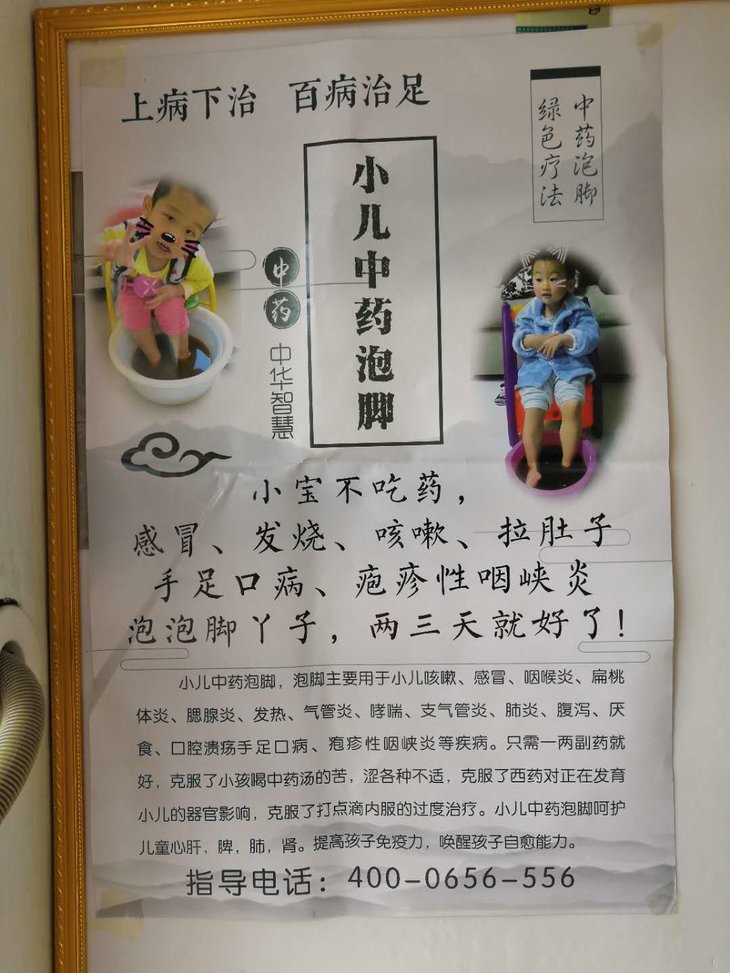 上病下治 百病治足
中药泡脚
绿色疗法
小儿中药泡脚
中药
中华智慧
小宝不吃药，
感冒、发烧、咳嗽、拉肚子
手足口病、疱疹性咽峡炎
泡泡脚丫子，两三天就好了！
小儿中药泡脚，泡脚主要用于小儿咳嗽、感冒、咽喉炎、扁桃
体炎、腮腺炎、发热、气管炎、哮喘、支气管炎、肺炎、腹泻、厌
食、口腔溃疡手足口病、疱疹性咽峡炎等疾病。只需一两副药就
好，克服了小孩喝中药汤的苦，涩各种不适，克服了西药对正在发育
小儿的器官影响，克服了打点滴内服的过度治疗。小儿中药泡脚呵护
儿童心肝，脾，肺，肾。提高孩子免疫力，唤醒孩子自愈能力。
指导电话：400-0656-556